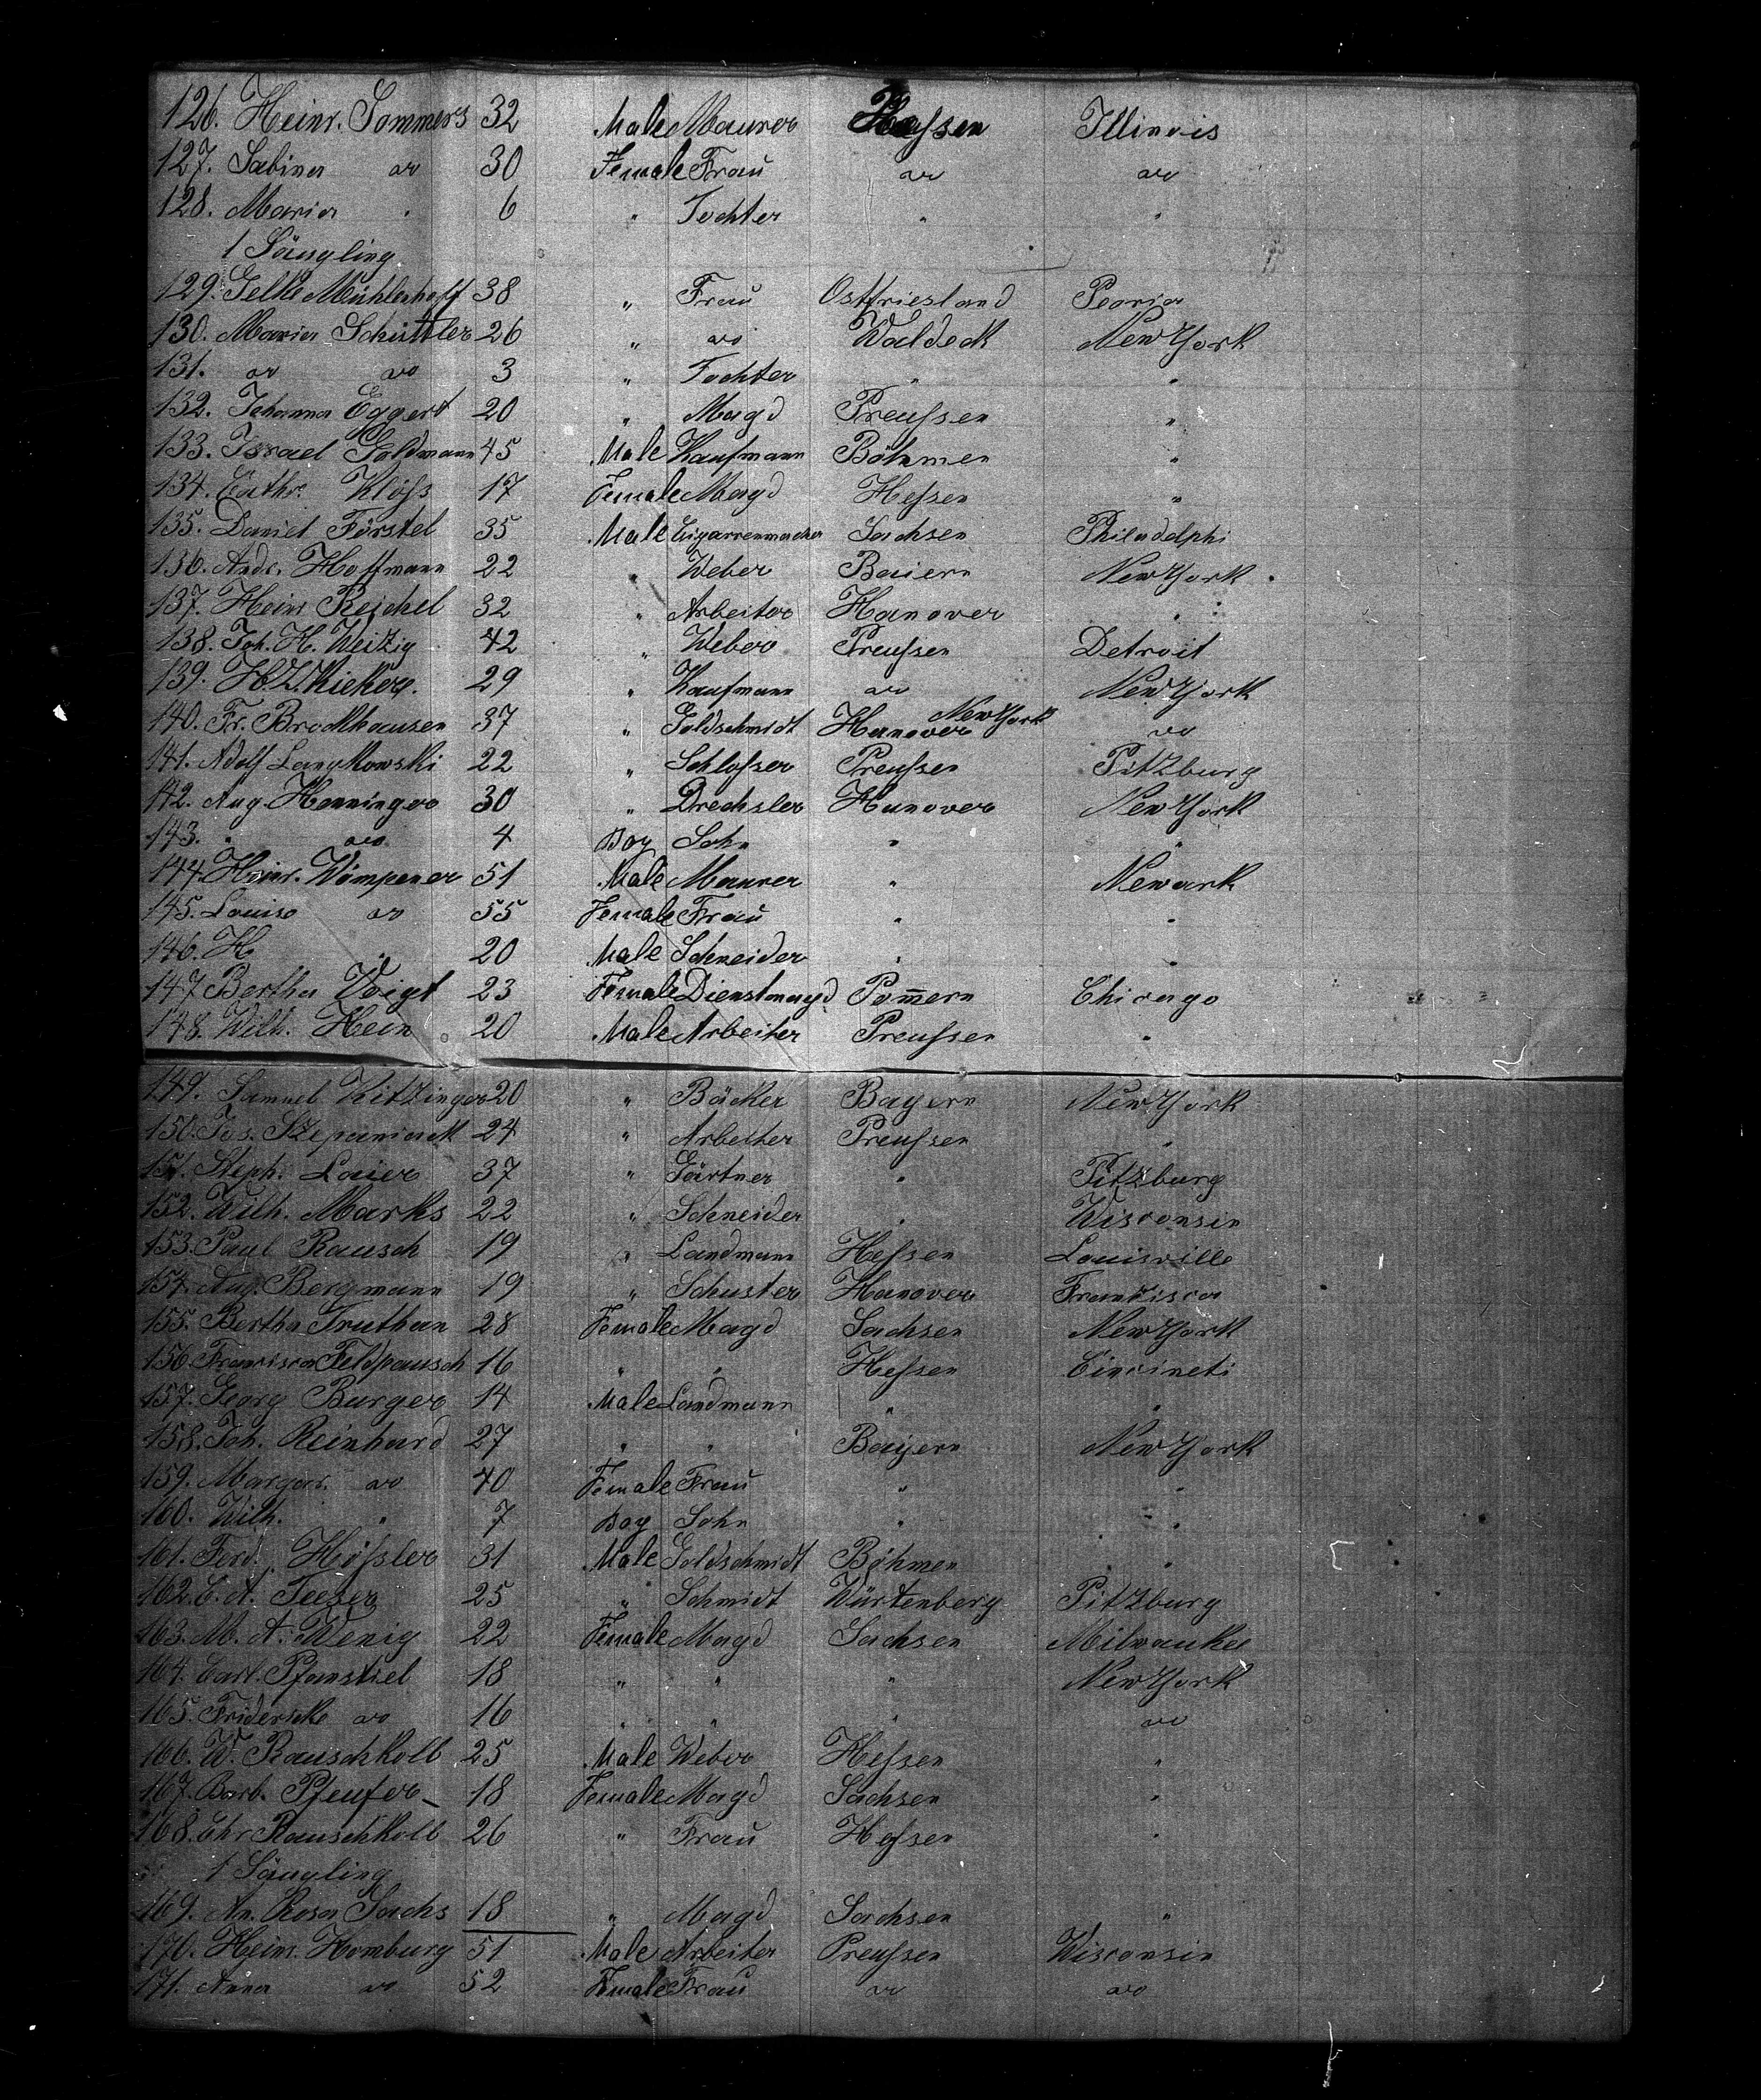 126. Heinr. Sommers 32 Male Maurer Hessen Illinois
127. Sabina do 30 Female Frau do do
128. Maria " 6 " Tochter " "
1 Säugling
129. Gelke Mühlenhoff 38 " Frau Ostfriesland Peoria
130. Maria Schüttler 26 " do Waldeck New York
131. do do 3 " Tochter " "
132. Johanna Eggert 20 " Magd Preußen "
133. Israel Goldmann 45 Male Kaufmann Böhmen "
134. Cathr. Klöß 17 Female Magd Heßen "
135. Daniel Förstel 35 Male Cigarrenmacher Sachsen Philadelphi
136. Andr. Hoffmann 22 " Weber Baiern New York
137. Heinr Reichel 32 " Arbeiter Hanover "
138. Joh. H. Weitzig 42 " Weber Preußen Detroit
139. H. Z. Kieker. 29 " Kaufmann do New York
140. Fr. Brockhausen 37 " Goldschmidt Hanover New York do
141. Adolf Langkowski 22 " Schloßer Preußen Pitzburg
142. Aug. Henninger 30 " Drechsler Hanover New York
143. " do 4 Boy Sohn " "
144. Heinr. Wömpener 51 Male Maurer " Newark
145. Louise do 55 Female Frau " "
146. H " 20 Male Schneider " "
147. Bertha Voigt 23 Female Dienstmagd Pom̅ern Chicago
148. Wilh. Hein 20 Male Arbeiter Preußen "
149. Samuel Kitzinger 20 " Bäcker Bayern New York
150. Jos. Szepaniack 24 " Arbeiter Preußen "
151. Steph. Laier 37 " Gärtner " Pitzburg
152. Wilh. Marks 22 " Schneider " Wisconsin
153. Paul Rausch 19 " Landmann Heßen Louisville
154. Aug. Bergmann 19 " Schuster Hanover Francisca
155. Bertha Truthan 28 Female Magd Sachsen New York
156. Francisca Feldpausch 16 " " Heßen Cincineti
157. Georg Burger 14 Male Landmann " "
158. Joh. Reinhard 27 " " Bayern New York
159. Margar. do 40 Female Frau " "
160. Wilh. " 7 Boy Sohn " "
161. Ferd. Hößler 31 Male Goldschmidt Böhmen "
162. C. A. Teeser 25 " Schmidt Würtenberg Pitzburg
163. M. A. Wenig 22 Female Magd Sachsen Milwaukee
164. Carl. Pfanstiel 18 " " " New York
165. Fridericke do 16 " " " do
166. W. Rauschkolb 25 Male Weber Heßen "
167. Barb. Pfeufer 18 Female Magd Sachsen "
168. Chr Rauschkolb 26 " Frau Heßen "
1 Säugling
169. An. Rosa Sachs 18 " Magd Sachsen "
170. Heinr. Homburg 51 Male Arbeiter Preußen Wisconsin
171. Anna do 52 Female Frau do do